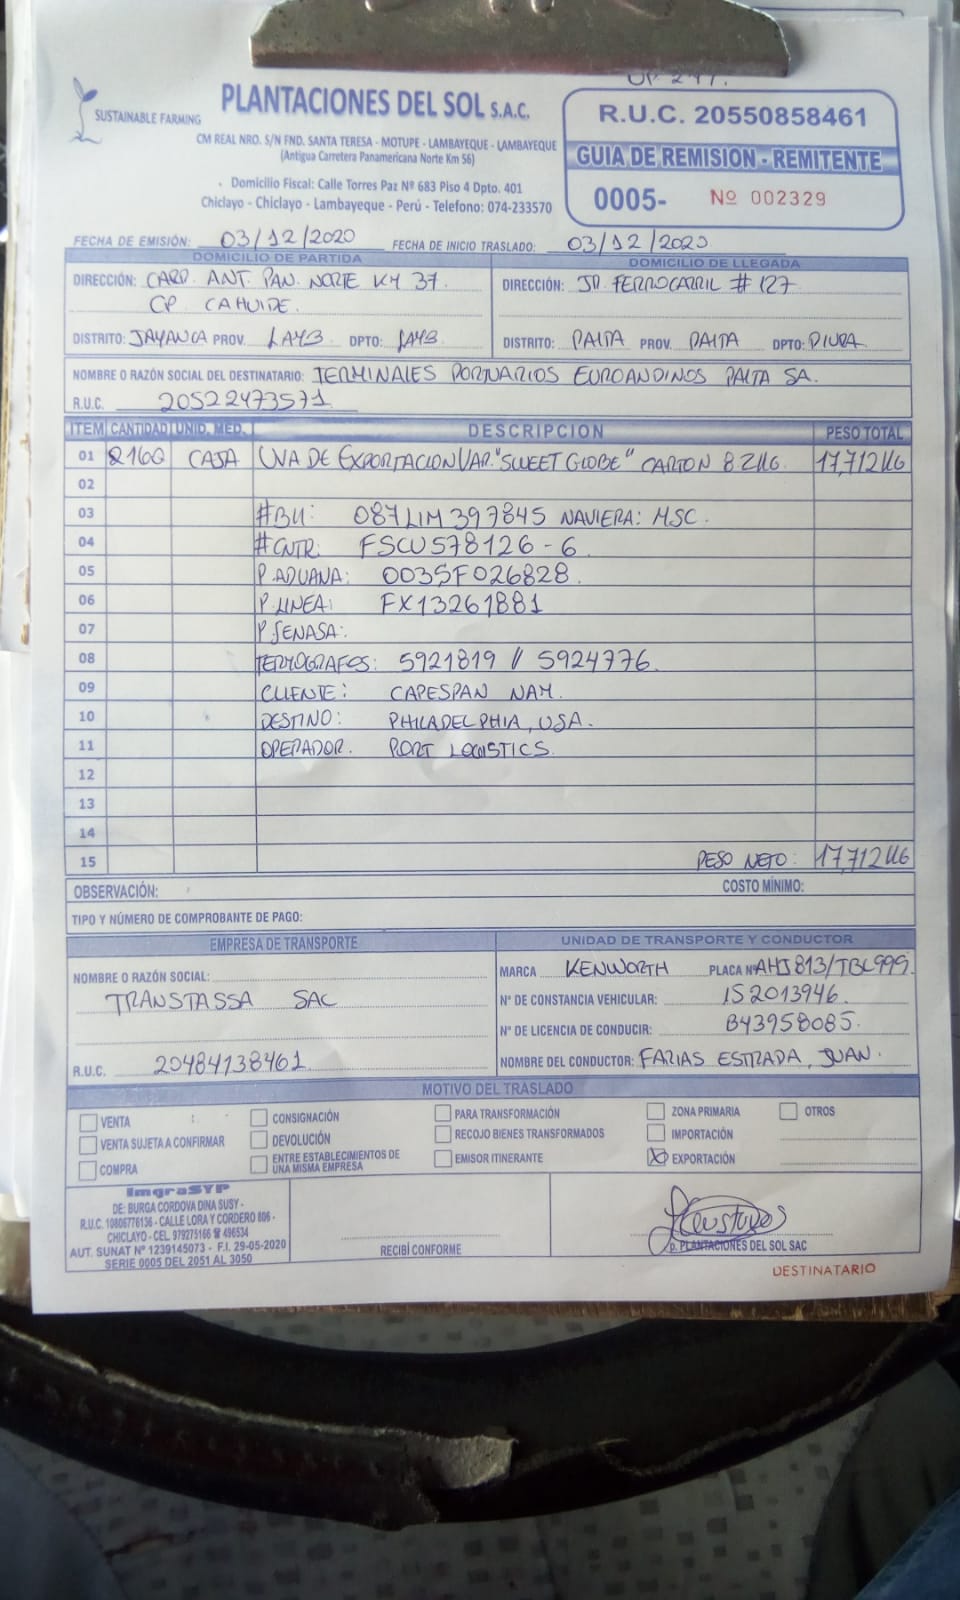 OP 247.
SUSTAINABLE FARMING
PLANTACIONES DEL SOL S.A.C.
CM REAL NRO. S/N FND. SANTA TERESA - MOTUPE - LAMBAYEQUE - LAMBAYEQUE
(Antigua Carretera Panamericana Norte Km 56)
Domicilio Fiscal: Calle Torres Paz Nº 683 Piso 4 Dpto. 401
Chiclayo - Chiclayo - Lambayeque - Perú - Telefono: 074-233570
R.U.C. 20550858461
GUIA DE REMISION - REMITENTE
0005- Nº 002329
FECHA DE EMISIÓN: 03/12/2020 FECHA DE INICIO TRASLADO: 03/12/2020
DOMICILIO DE PARTIDA
DIRECCIÓN: CARR. ANT. PAN. NORTE KM 37.
CP. CAHUIDE.
DISTRITO: JAYANCA PROV. LAMB. DPTO: LAMB.
DOMICILIO DE LLEGADA
DIRECCIÓN: JR. FERROCARRIL # 127
DISTRITO: PAITA PROV. PAITA DPTO: PIURA.
NOMBRE O RAZÓN SOCIAL DEL DESTINATARIO: TERMINALES PORTUARIOS EUROANDINOS PAITA SA.
R.U.C. 20522473571
ITEM CANTIDAD UNID. MED. DESCRIPCION PESO TOTAL
01 2160 CAJA UVA DE EXPORTACION VAR. "SWEET GLOBE" CARTON 8.2KG. 17,712KG
02
03 #BK: 087LIM397845 NAVIERA: MSC.
04 #CNTR: FSCU578126-6.
05 P. ADUANA: 0035F026828.
06 P. LINEA: FX13261881
07 P. SENASA:
08 TERMOGRAFOS: 5921819 // 5924776.
09 CLIENTE: CAPESPAN NAM.
10 DESTINO: PHILADELPHIA, USA.
11 OPERADOR. PORT LOGISTICS.
12
13
14
15 PESO NETO: 17,712KG
OBSERVACIÓN: COSTO MÍNIMO:
TIPO Y NÚMERO DE COMPROBANTE DE PAGO:
EMPRESA DE TRANSPORTE
NOMBRE O RAZÓN SOCIAL:
TRANSTASSA SAC
R.U.C. 20484138461
UNIDAD DE TRANSPORTE Y CONDUCTOR
MARCA KENWORTH PLACA Nº AHJ813/TBL999.
Nº DE CONSTANCIA VEHICULAR: 152013946.
Nº DE LICENCIA DE CONDUCIR: B43958085.
NOMBRE DEL CONDUCTOR: FARIAS ESTRADA, JUAN.
MOTIVO DEL TRASLADO
VENTA CONSIGNACIÓN PARA TRANSFORMACIÓN ZONA PRIMARIA OTROS
VENTA SUJETA A CONFIRMAR DEVOLUCIÓN RECOJO BIENES TRANSFORMADOS IMPORTACIÓN
COMPRA ENTRE ESTABLECIMIENTOS DE UNA MISMA EMPRESA EMISOR ITINERANTE X EXPORTACIÓN
ImgraSYP
DE: BURGA CORDOVA DINA SUSY -
R.U.C. 10806776136 - CALLE LORA Y CORDERO 806 -
CHICLAYO - CEL. 979275166 ☎ 496534
AUT. SUNAT Nº 1239145073 - F.I. 29-05-2020
SERIE 0005 DEL 2051 AL 3050
RECIBÍ CONFORME
p. PLANTACIONES DEL SOL SAC
DESTINATARIO